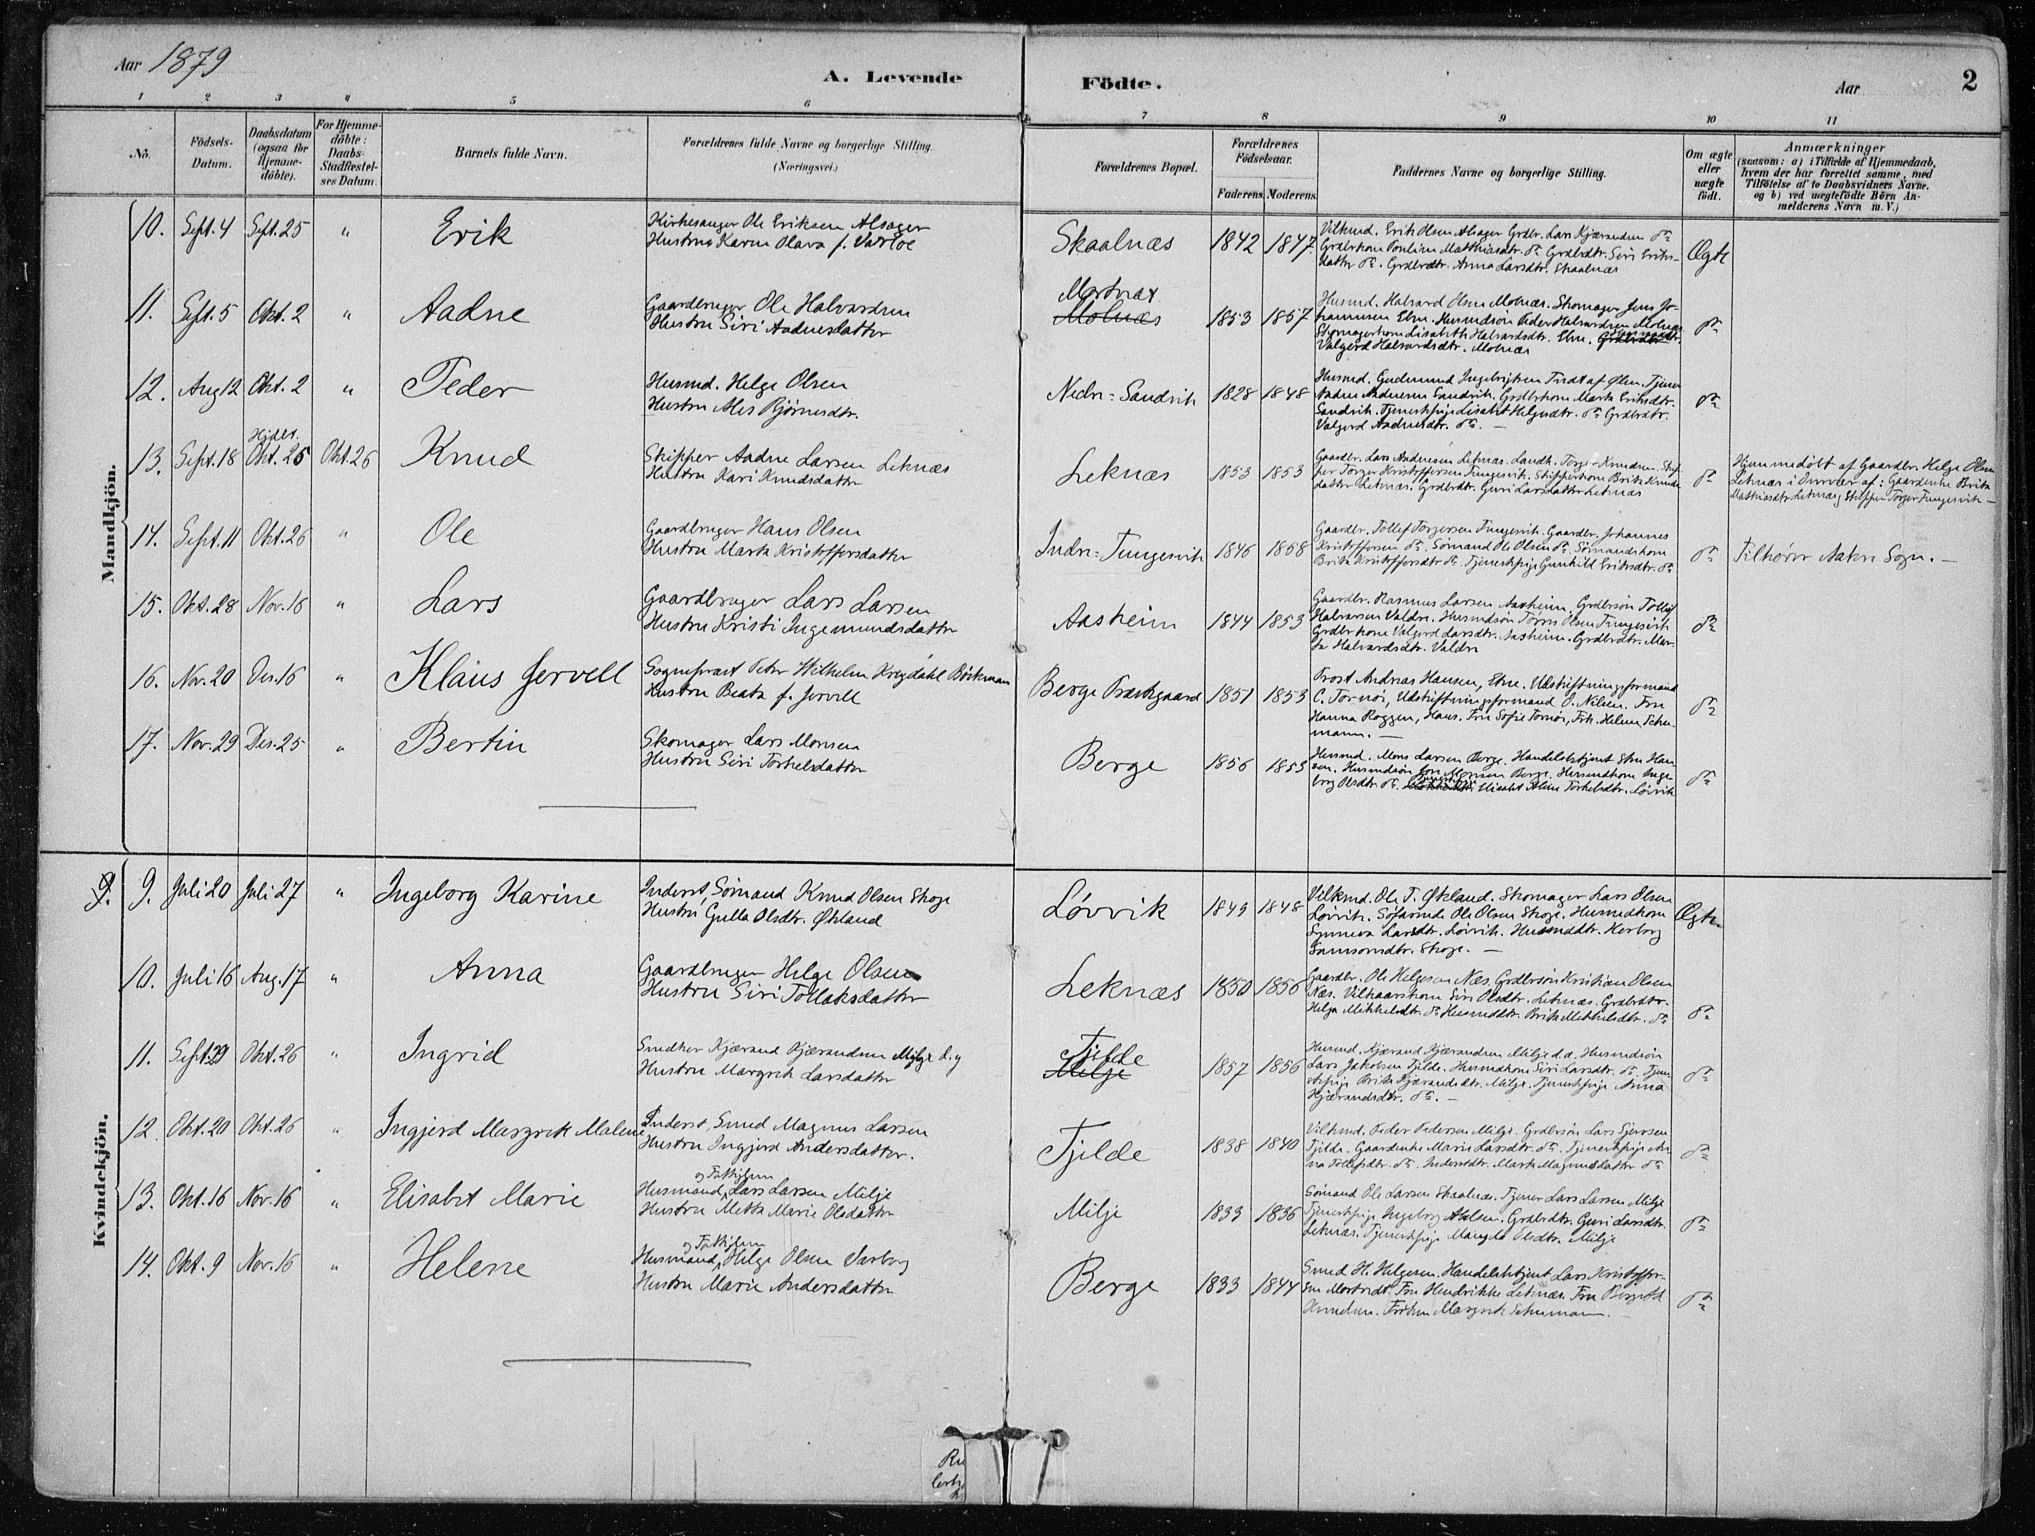 Aar 1879
A. Levende Födte.
Aar
2
1 2 3 4 5 6 7 8 9 10 11
No.
Födsels-Datum.
Daabsdatum (ogsaa for Hjemme-döbte).
For Hjemme-döbte: Daabs-Stadfæstel-ses Datum.
Barnets fulde Navn.
Forældrenes fulde Navne og borgerlige Stilling.
(Næringsvei.)
Forældrenes Bopæl.
Forældrenes Födselsaar.
Faderens. Moderens.
Faddernes Navne og borgerlige Stilling.
Om ægte eller uægte födt.
Anmærkninger
(saasom: a) i Tilfælde af Hjemmedaab, hvem der har forrettet samme, med Tilföielse af to Daabsvidners Navne. og b) ved uægtefödte Börn Anmelderens Navn m.V.)
Mandkjön.
10. Sept. 4 Sept. 25 " Erik
Kirkesanger Ole Eriksen Alsager
Hustru Karen Olava f. Vatloe
Skaalnæs 1842 1847
Vilkmd. Erik Olsen Alsager Grdbr. Lars Kjærandsen do
Ægte
11. Sept. 5 Okt. 2 " Aadne
Gaardbruger Ole Halvardsen
Hustru Siri Aadnesdatter
Molnæs 1853 1857
Husmd. Halvard Olsen Molnæs. Skomager Jens Jo-
hannesen Etne. Husmdsön Peder Halvardsen Molnæs
Valgerd Halvardsdtr. Molnæs
do
12. Aug 12 Okt. 2 " Peder
Husmd. Helge Olsen
Hustru Ales Bjørnesdtr.
Nedre-Sandvik 1828 1848
Valgerd Aadnesdtr. do. —
do
13. Sept. 18 Hjdbt. Okt. 25 Okt. 26 Knud
Skipper Aadne Larsen Leknæs
Hustru Kari Knudsdatter
Leknæs 1853 1853
datter Leknæs. Grdbrdtr. Guri Larsdatter Leknæs
do
Hjemmedøbt af Gaardbr. Helge Olsen
Leknæs i Overvær af: Gaardenke Brita
Matthiasdtr Leknæs og Skipper Torger Tungesvik —
14. Sept. 11 Okt. 26 " Ole
Gaardbruger Hans Olsen
Hustru Marta Kristoffersdatter
Indre-Tungesvik 1846 1858
Gaardbr. Tollef Torgersen Tungesvik. Gaardbr. Johannes
Kristoffersen do. Sømand Ole Olsen do. Sømandskone
Brita Kristoffersdtr do. Tjenestpige Gunhild Eriksdtr. do
do
Tilhører Aakre Sogn. —
15. Okt. 28 Nov. 16 " Lars
Gaardbruger Lars Larsen
Hustru Kristi Ingemundsdatter
Aasheim 1844 1853
Gaardbr. Rasmus Larsen Aasheim. Grdbrsön Tollef
Halvorsen Valdre. Husmdsön Torris Olsen Tungesvik
Grdbrkone Valgerd Larsdtr. Aasheim. Grdbrdtr. Mar-
ta Halvardsdtr. Valdre
do
16. Nov. 20 Des. 16 " Klaus Jervell
Sogneprest Peter Wilhelm Kreydahl Böckman
Hustru Beata f. Jervell
Berge Præstegaard 1851 1853
Provst Andreas Hansen, Etne. Udskiftningsformand
C. Tornöe, Udskiftningsformand O. Nilsen. Fru
Hanna Roggen, Haus. Fru Sofie Tornöe, Frk. Helene Schu-
mann. —
do
17. Nov. 29 Des. 25 " Bertin
Skomager Lars Monsen
Hustru Siri Torkelsdatter
Berge 1856 1853
Husmd. Mons Larsen Berge. Handelsbetjent Sten Han-
sen. Husmdsön Jon Monsen Berge. Husmdkone Inge-
borg Olsdtr. do. Elisabet Aline Torkelsdtr. Løvvik
do
Kvindekjön.
9. 9. Juli 20 Juli 27 " Ingeborg Karine
Inderst, Sømand Knud Olsen Skoge
Hustru Gulla Olsdtr. Økland
Løvvik 1849 1848
Vilkmd. Ole T. Økland. Skomager Lars Olsen
Løvvik. Søfarende Ole Olsen Skoge. Husmdkone
Synneva Larsdtr. Løvvik. Husmddtr. Herborg
Samsonsdtr. Skoge. —
Ægte
10. Juli 16 Aug. 17 " Anna
Gaardbruger Helge Olsen
Hustru Siri Tollaksdatter
Leknæs 1850 1856
Gaardbr. Ole Helgesen Næs. Grdbrsön Kristian Olsen
Næs. Vilkaarskone Siri Olsdtr. Leknæs. Grdbrdtr.
Helga Mikkelsdtr. do Husmddtr. Brita Mikkelsdtr. do
do
11. Sept. 29 Okt. 26 " Ingrid
Snedker Kjærand Kjærandsen Milje d.y
Hustru Margrete Larsdatter
Tjelde
Milje 1857 1856
Husmd. Kjærand Kjærandsen Milje d.æ. Husmdsön
Lars Jakobsen Fjelde. Husmdkone Siri Larsdtr. do. Tjene-
stpige Brita Kjærandsdtr. Milje. Tjenestpige Anna
Kjærandsdtr. do. —
do
12. Okt. 20 Okt. 26 " Ingjerd Margrete Malene
Inderst, Smed Magnus Larsen
Hustru Ingjerd Andersdatter.
Tjelde 1838 1840
Vilkmd. Peder Pedersen Milje. Grdbrsön Lars Sjursen
Tjelde. Gaardenke Marie Larsdtr. do. Tjenestpige An-
na Tollefsdtr. do. Inderstdtr. Marta Magnusdatter do
do
13. Okt. 16 Nov. 16 " Elisabet Marie
og Fattiglem
Husmand, Lars Larsen Milje
Hustru Metta Marie Olsdatter
Milje 1833 1836
Sømand Ole Larsen Skaalnæs. Tjener Lars Larsen Milje
Leknæs. Tjenestpige Olsdtr. Milje
do
14. Okt. 9 Nov. 16 " Helene
og Fattiglem
Husmand, Helge Olsen Varberg
Hustru Marie Andersdatter
Berge 1833 1844
Smed H. Helgesen. Handelsbetjent Lars Kristoffer-
sen Fru Hendrikke Leknæs. Fru Bergitte
Frøken Margrete Schumann. —
do